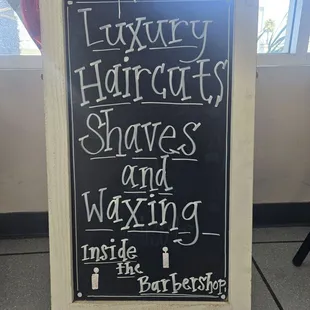 Luxury
Haircuts
Shaves
and
Waxing
Inside
the
Barbershop